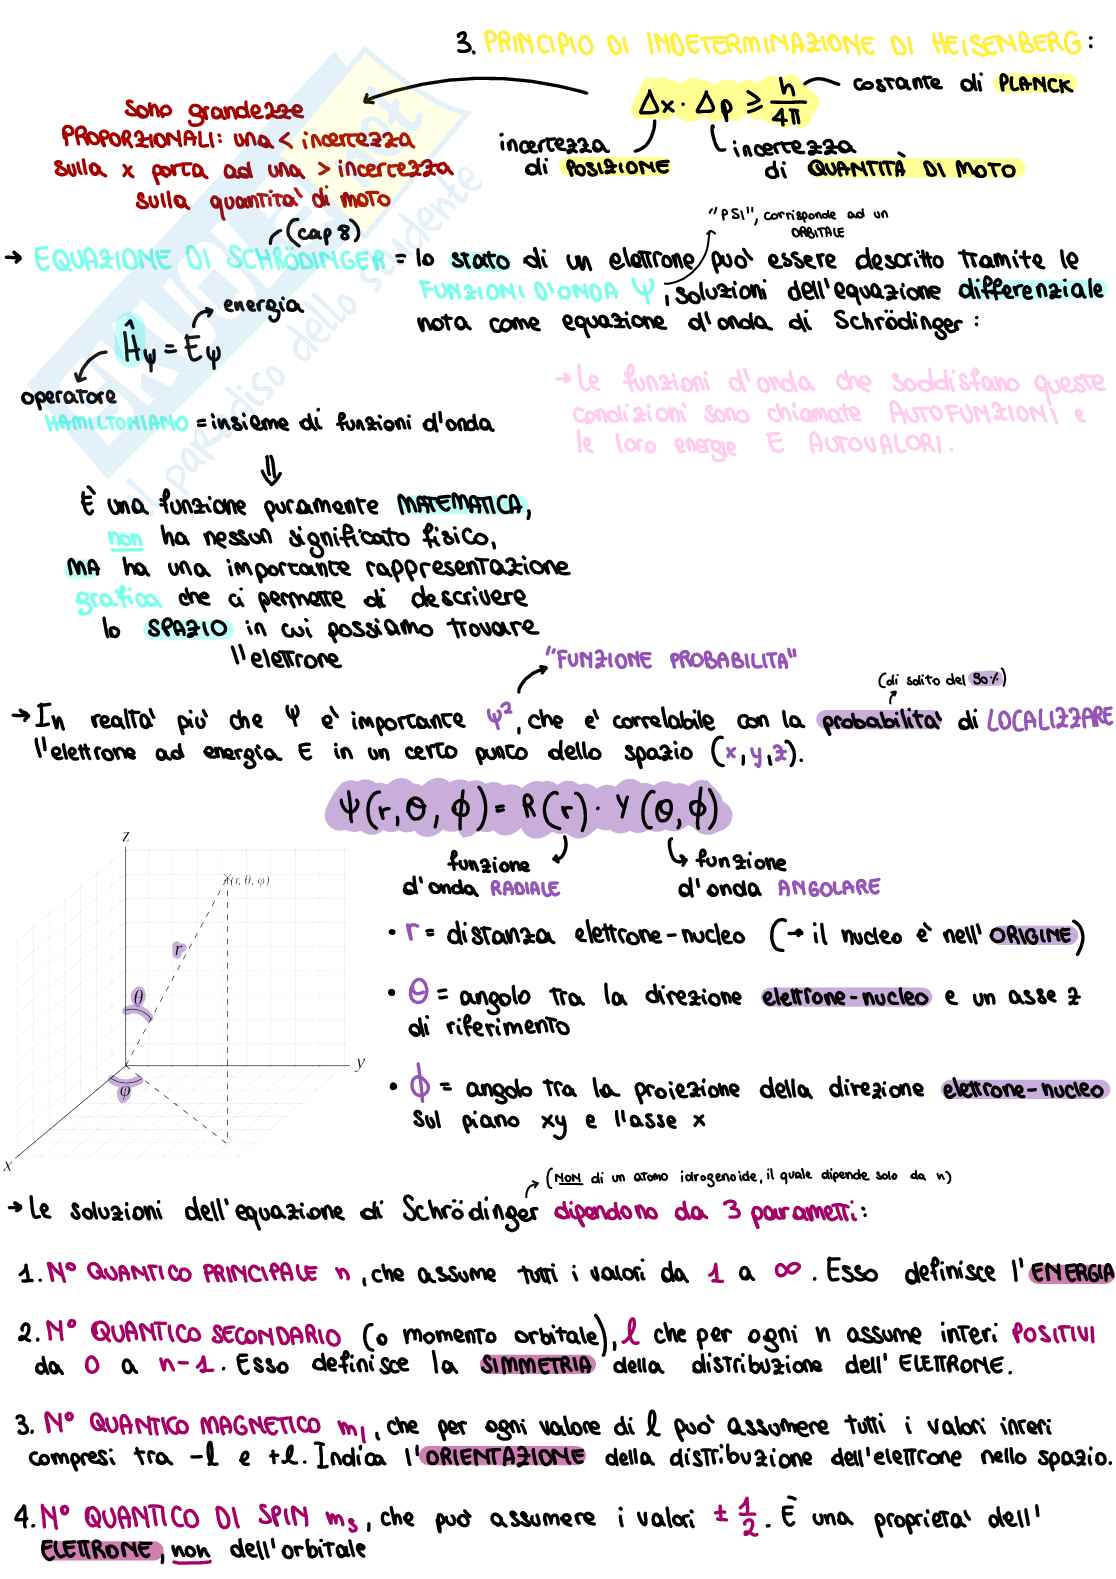 3. PRINCIPIO DI INDETERMINAZIONE DI HEISENBERG:
Δx · Δp ≥ h/4π
costante di PLANCK
incertezza di POSIZIONE
incertezza di QUANTITÀ DI MOTO
sono grandezze
PROPORZIONALI: una < incertezza
sulla x porta ad una > incertezza
sulla quantita' di moto
"PSI", corrisponde ad un
ORBITALE
(cap 8)
→ EQUAZIONE DI SCHRÖDINGER = lo stato di un elettrone puo' essere descritto tramite le
FUNZIONI D'ONDA Ψ, soluzioni dell'equazione differenziale
nota come equazione d'onda di Schrödinger:
energia
Ĥψ = Eψ
operatore
HAMILTONIANO = insieme di funzioni d'onda
→ Le funzioni d'onda che soddisfano queste
condizioni sono chiamate AUTOFUNZIONI e
le loro energie E AUTOVALORI.
⇓
È una funzione puramente MATEMATICA,
non ha nessun significato fisico,
MA ha una importante rappresentazione
grafica che ci permette di descrivere
lo SPAZIO in cui possiamo trovare
l'elettrone
"FUNZIONE PROBABILITA'"
(di solito del 90%)
→ In realta' piu' che Ψ e' importante Ψ², che e' correlabile con la probabilita' di LOCALIZZARE
l'elettrone ad energia E in un certo punto dello spazio (x, y, z).
Ψ(r, θ, ϕ) = R(r) · Y(θ, ϕ)
funzione
d'onda RADIALE
funzione
d'onda ANGOLARE
z
(r, θ, φ)
r
θ
y
φ
x
• r = distanza elettrone-nucleo (→ il nucleo è nell'ORIGINE)
• θ = angolo tra la direzione elettrone-nucleo e un asse z
di riferimento
• ϕ = angolo tra la proiezione della direzione elettrone-nucleo
sul piano xy e l'asse x
(NON di un atomo idrogenoide, il quale dipende solo da n)
→ Le soluzioni dell'equazione di Schrödinger dipendono da 3 parametri:
1. N° QUANTICO PRINCIPALE n, che assume tutti i valori da 1 a ∞. Esso definisce l'ENERGIA
2. N° QUANTICO SECONDARIO (o momento orbitale), l che per ogni n assume interi POSITIVI
da 0 a n-1. Esso definisce la SIMMETRIA della distribuzione dell'ELETTRONE.
3. N° QUANTICO MAGNETICO ml, che per ogni valore di l puo' assumere tutti i valori interi
compresi tra -l e +l. Indica l'ORIENTAZIONE della distribuzione dell'elettrone nello spazio.
4. N° QUANTICO DI SPIN ms, che può assumere i valori ± 1/2. È una proprieta' dell'
ELETTRONE, non dell'orbitale
il paradiso dello studente